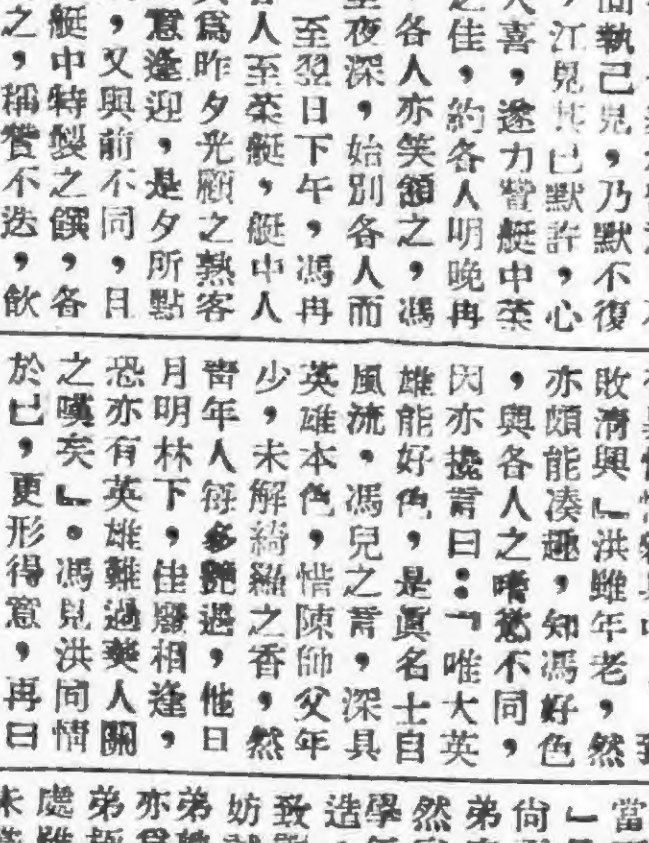 執己見,乃默不復
,江見其已默許,心
大喜,遂力讚艇中菜
之佳,約各人明晚再
各人亦笑頷之,馮
夜深,始別各人而
至翌日下午,馮冉
人至菜艇,艇中人
爲昨夕光顧之熟客
意逢迎,是夕所點
,又與前不同,日
艇中特製之饌,各
之,稱賛不迭,飲
敗淸興』洪雖年老,然
亦頗能凑趣,知馮好色
,與各人之嗜慾不同,
因亦攙言曰:『唯大英
雄能好色,是眞名士自
風流。馮兒之言,深具
英雄本色,惜陳師父年
少,未解綺羅之香,然
靑年人每多艷遇,他日
月明林下,佳麗相逢,
恐亦有英雄難過美人關
之嘆矣』。馮見洪同情
於已,更形得意,再曰
當
』
尙
弟
然
學
造
致
妨
弟
亦
弟
處
未